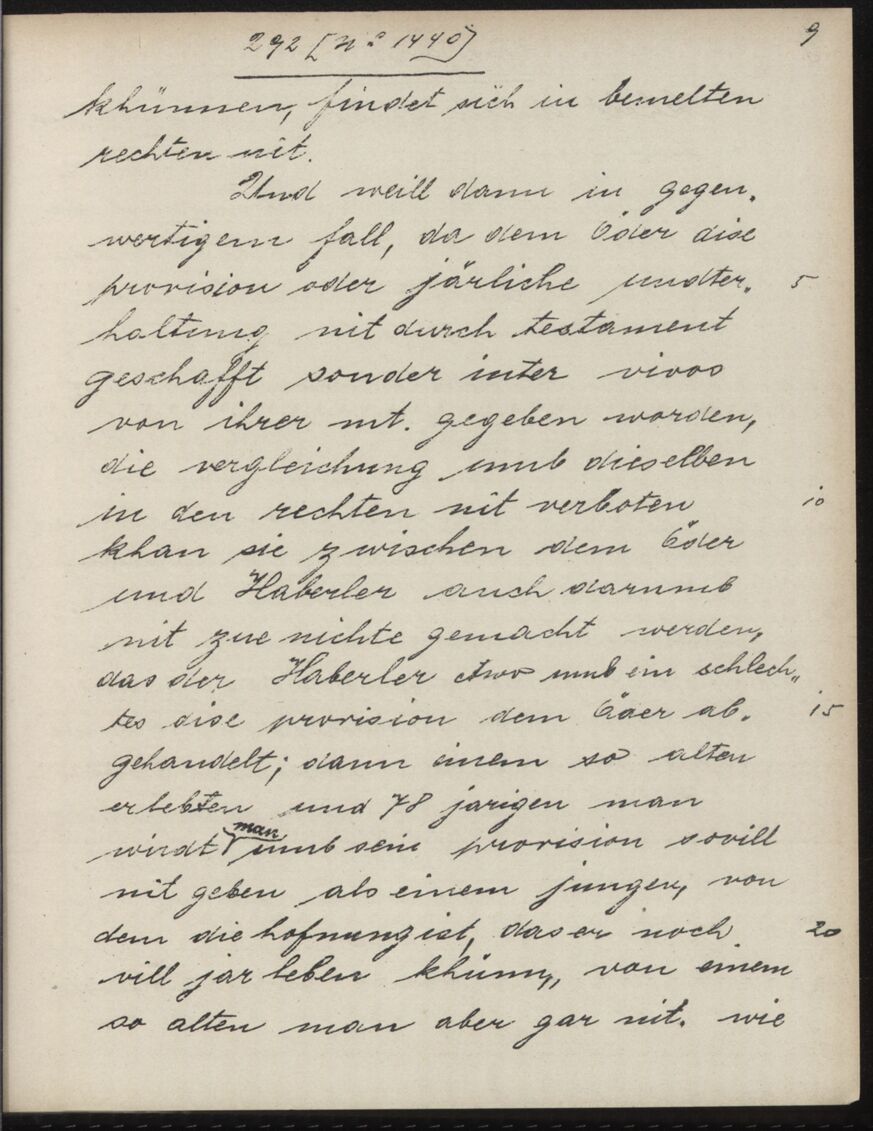 292 [Nº 1440] 9
khünnen, findet sich in bemelten
rechten nit.
Und weill dann in gegen„
wertigem fall, da dem Öder dise
provision oder järliche undter„ 5
haltung nit durch testament
geschafft sonder inter vivos
von ihrer mt. gegeben worden,
die vergleichung umb dieselben
in den rechten nit verboten
10
khan sie zwischen dem Öder
und Haberler auch darumb
nit zue nichte gemacht werden,
das der Haberler etwo umb ein schlech„
tes dise provision dem Öder ab„ 15
gehandelt; dann einem so alten
erlebten und 78 jarigen man
wirdt man umb sein provision sovill
nit geben als einem jungen, von
dem die hofnung ist, das er noch 20
vill jar leben khünn, von einem
so alten man aber gar nit. wie